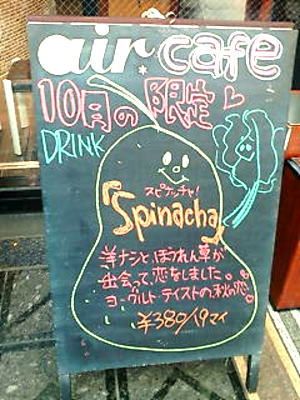 air cafe
10月の限定
DRINK
スピナッチャ!
『Spinacha』
洋ナシとほうれん草が
出会って、恋をしました。
ヨーグルトテイストの、秋の恋。
¥380/19マイ